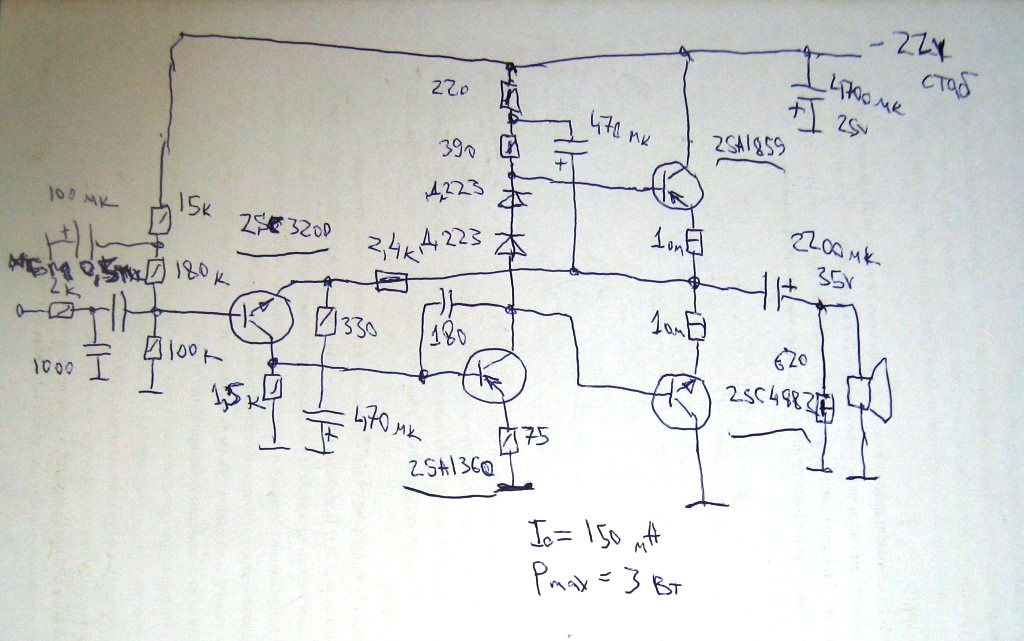 - 22V
стаб
220
4700 мк
25V
390
470 мк
2SA1859
100 мк
15к
Д223
2SC3200
2,4к
Д223
1 ом
2200 мк
35V
180к
2к
330
180
1 ом
1000
100к
620
1,5к
2SC4883
470 мк
75
2SA1360
I₀ = 150 мА
Pmax = 3 Вт